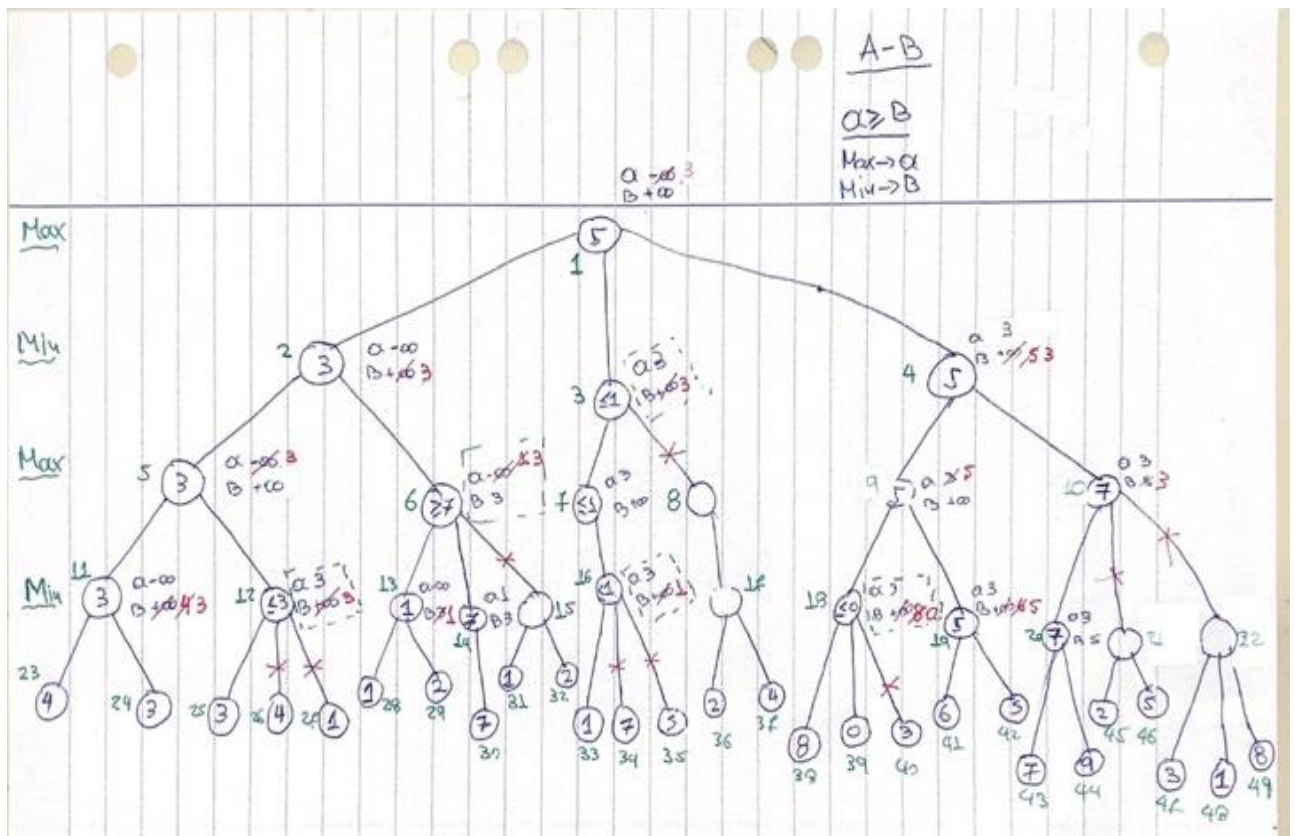 A-B
α≥B
Max→α
Min→B
α -∞ 3
B +∞
Max
5
1
Min
2
3
α -∞
B +∞ 3
3
≤1
α 3
B +∞ 3
4
5
α 3
B +∞ 5 3
Max
5
3
α -∞ 3
B +∞
6
≥7
B 3
7
≤1
α 3
B +∞
8
9
B +∞
10
7
α 3
Min
11
3
α -∞
B +∞ 4 3
12
≤3
α 3
B +∞ 3
13
1
α -∞
14
7
α 1
B 3
15
16
α 3
18
≤0
19
5
α 3
20
7
22
23
4
24
3
25
3
26
4
1
1
28
2
29
7
30
1
31
2
32
1
33
7
34
35
2
36
4
8
38
0
39
3
40
6
41
42
7
43
9
44
2
45
5
46
3
1
48
8
49